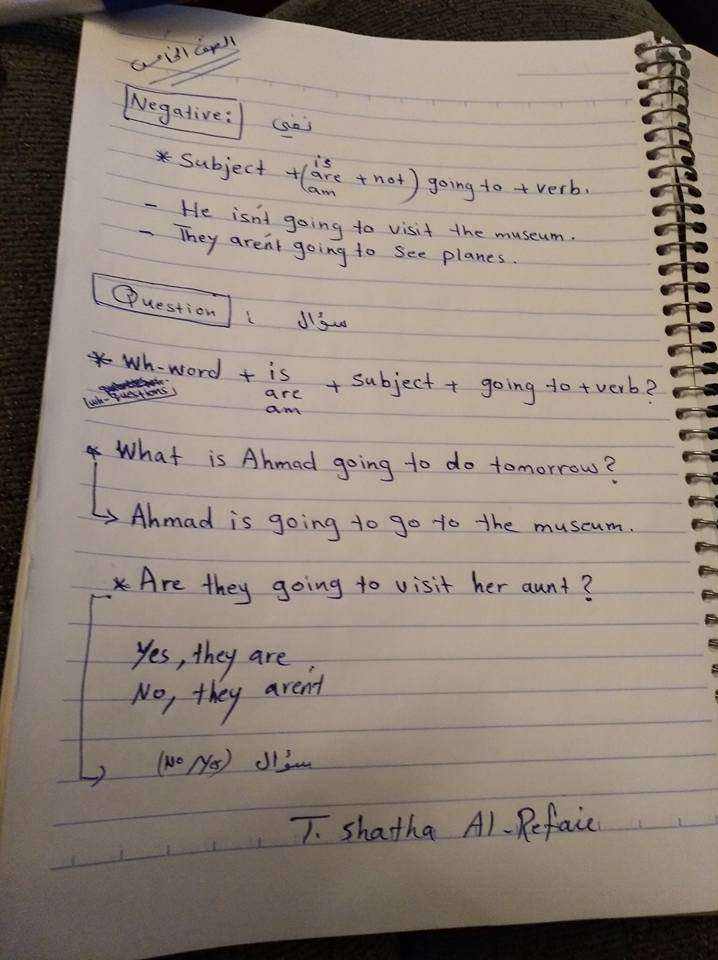 الصف الخامس
Negative: نفي
* Subject + (is / are / am + not) going to + verb.
- He isn't going to visit the museum.
- They aren't going to see planes.
Question : سؤال
* Wh-word + is / are / am + subject + going to + verb?
wh-questions
* What is Ahmad going to do tomorrow?
Ahmad is going to go to the museum.
* Are they going to visit her aunt?
Yes, they are.
No, they aren't
(No / Yes) سؤال
T. Shatha Al-Refaie